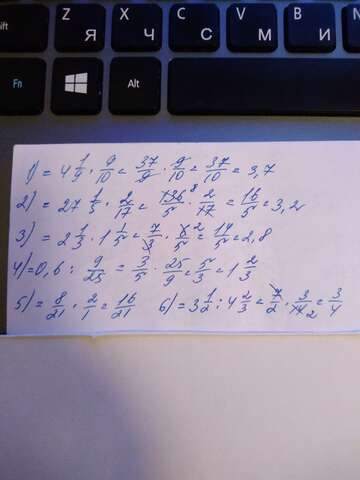 Shift Z Я X Ч C С V М B И
Ctrl Fn Alt
1) = 4 1/9 · 9/10 = 37/9 · 9/10 = 37/10 = 3,7
2) = 27 1/5 · 2/17 = 136 8/5 · 2/17 = 16/5 = 3,2
3) = 2 1/3 · 1 1/5 = 7/3 · 6 2/5 = 14/5 = 2,8
4) = 0,6 : 9/25 = 3/5 · 25/9 = 5/3 = 1 2/3
5) = 8/21 · 2/1 = 16/21 6) = 3 1/2 : 4 2/3 = 7/2 · 3/14 2 = 3/4